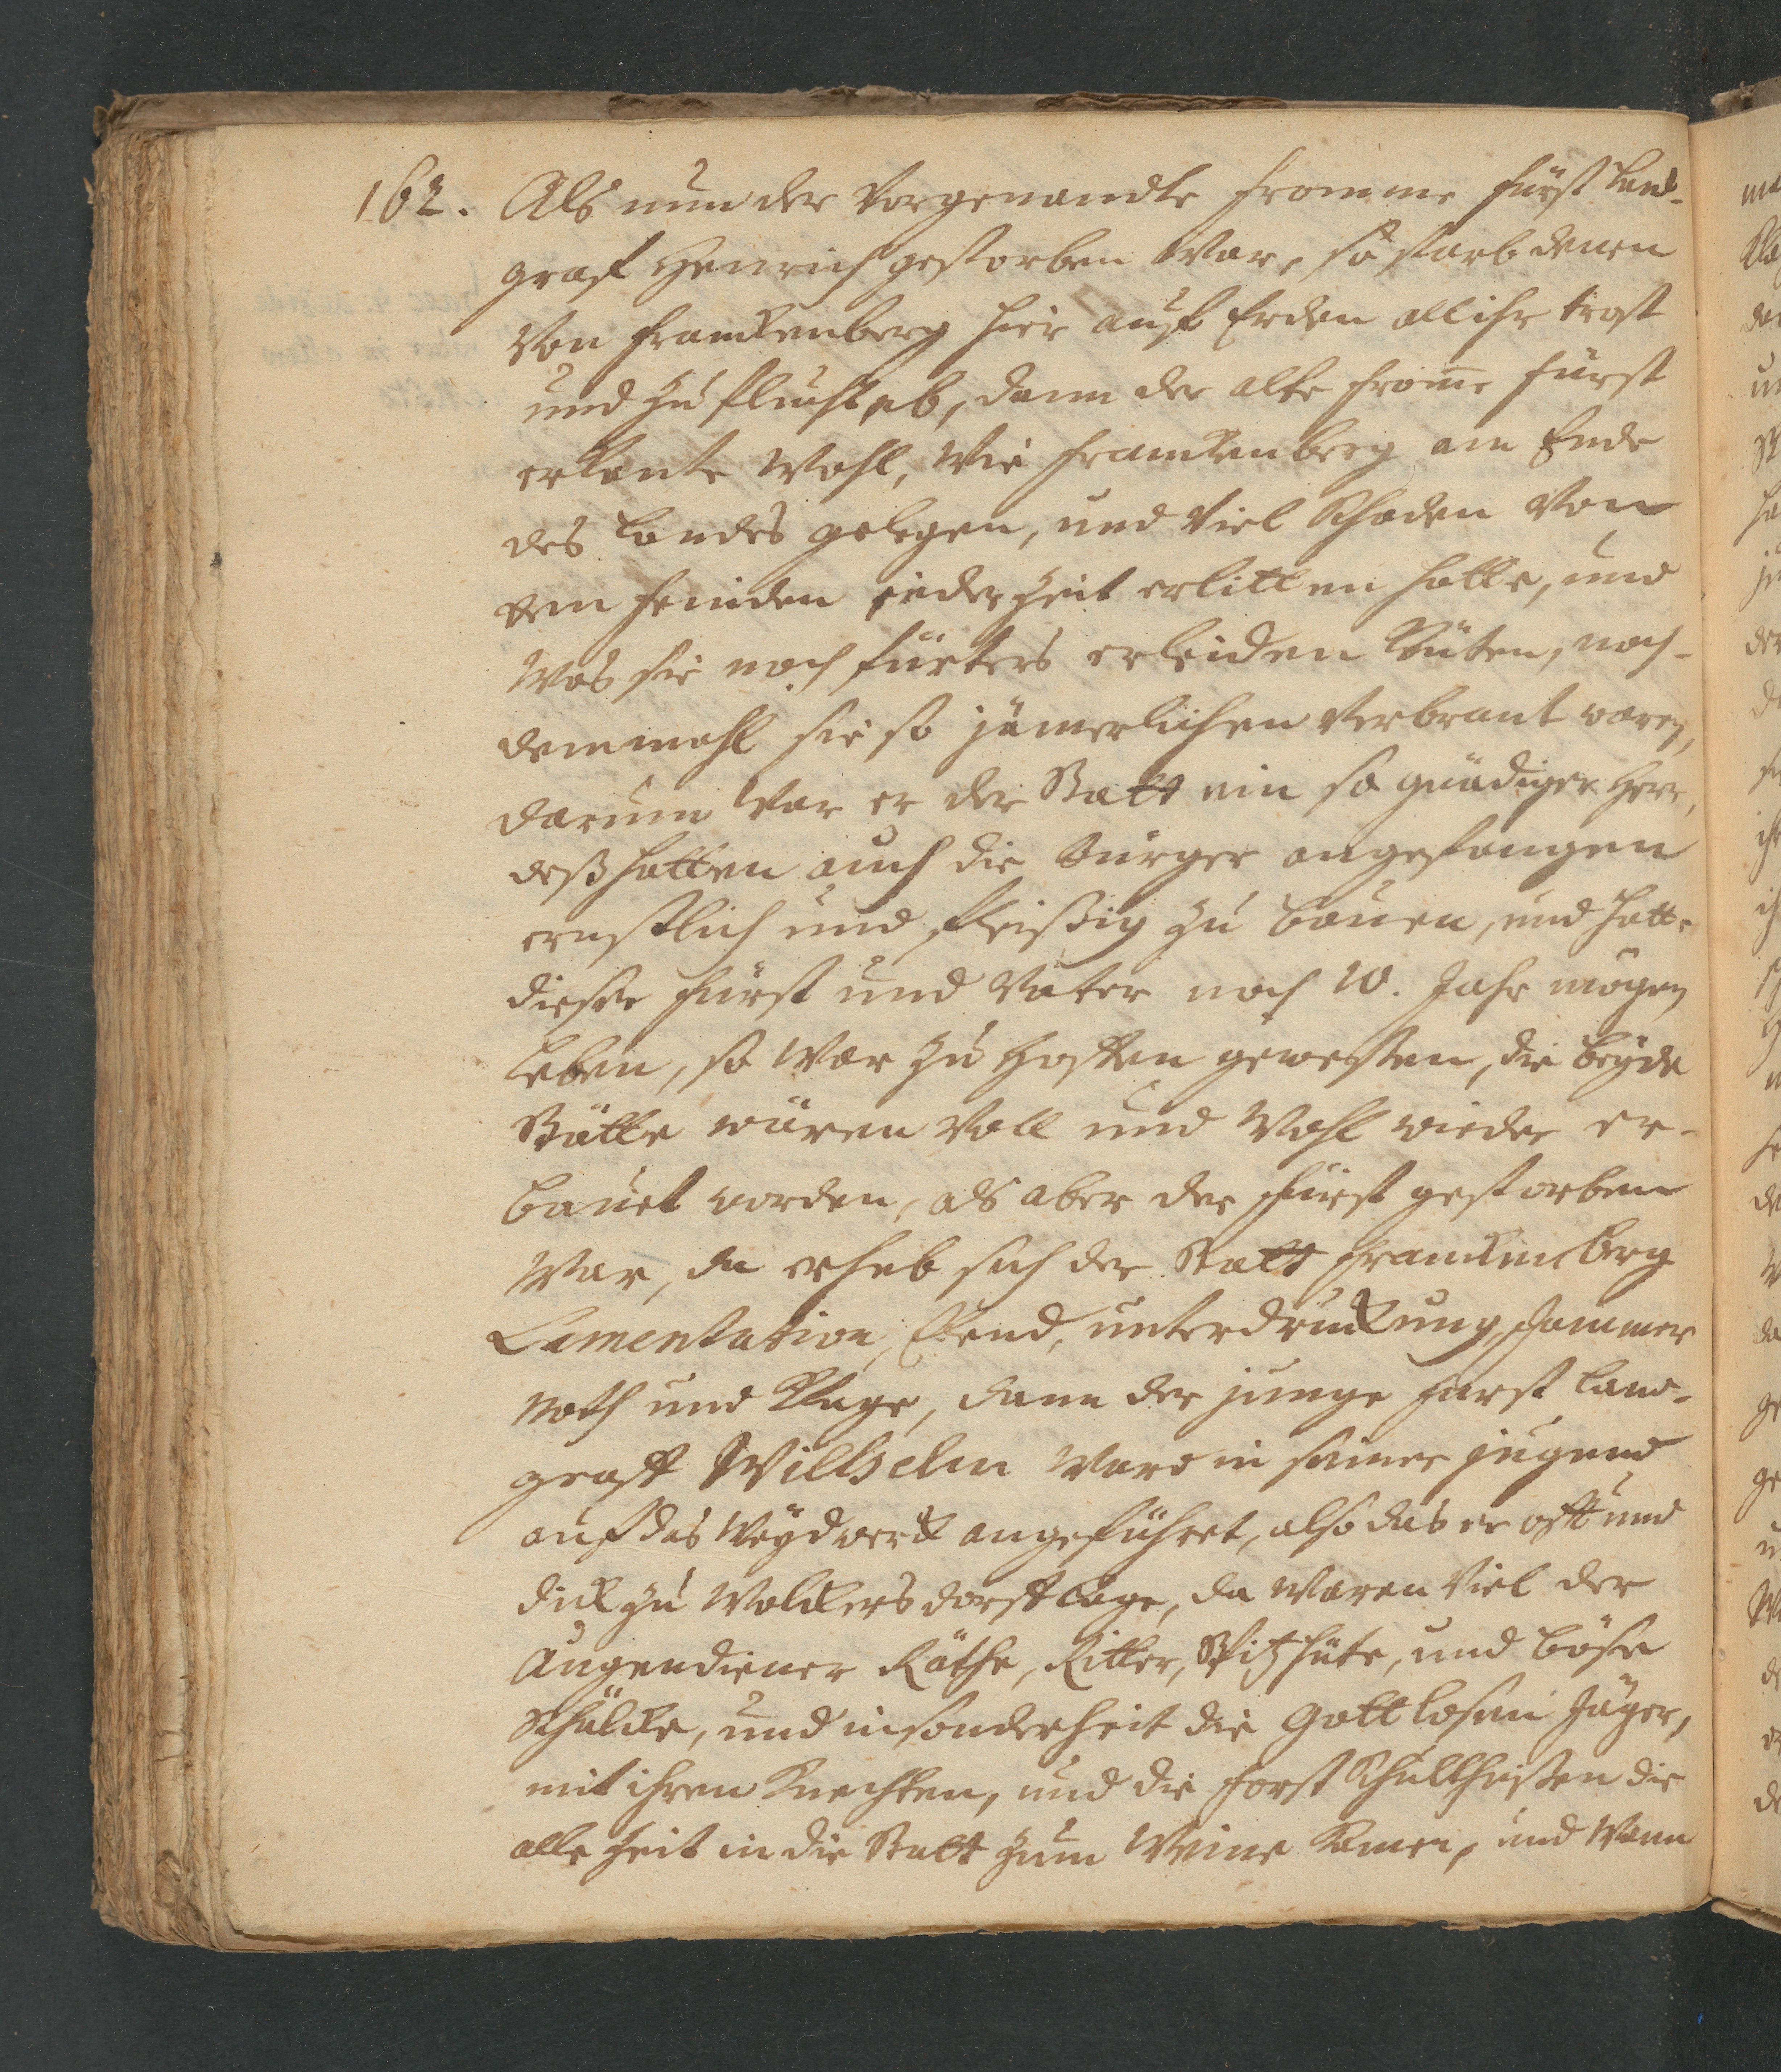 162. Als nun der Vorgenandte fromme fürst Land-
graf Henrich gestorben War, so starb denen
Von franckenberg hier auf Erden all ihr trost
und Zuflucht ab, dann der alte from̄e fürst
erkante Wohl, Wie franckenberg am Ende
des Landes gelegen, und Viel Schaden Von
den feinden jeder Zeit erlitten hatte, und
Was sie noch fürters erleiden müsten, nach-
demmahl sie so jämerlichen Verbrant waren,
darum War er der Statt ein so gnädiger Herr,
deß hatten auch die bürger angefangen
ernstlich und fleißig zu bauen, und hatte
dieser fürst und Vater noch 10. Jahr mögen
Leben, so War zu Hoffen gewesen, die beyde
Stätte wären Voll und Wohl wieder er-
bauet worden, als aber der fürst gestorben
War, da erhub sich der Statt franckenberg
Lamentation, Elend, unterdruckung, Jammer
Noth und Klage, dann der junge fürst Land-
graff Willhelm Ward in seiner jugend
auf das Weydwerck angeführet, also das er offt und
dick zu Wolckersdorff lage, da Waren Viel der
Augendiener Räthe, Ritter, Spitzhüte, und böse
Schälcke, und insonderheit die Gottlosen Jäger,
mit ihren Knechten, und die forst Schultheißen die
alle Zeit in die Statt zum Weine kamen, und Wann